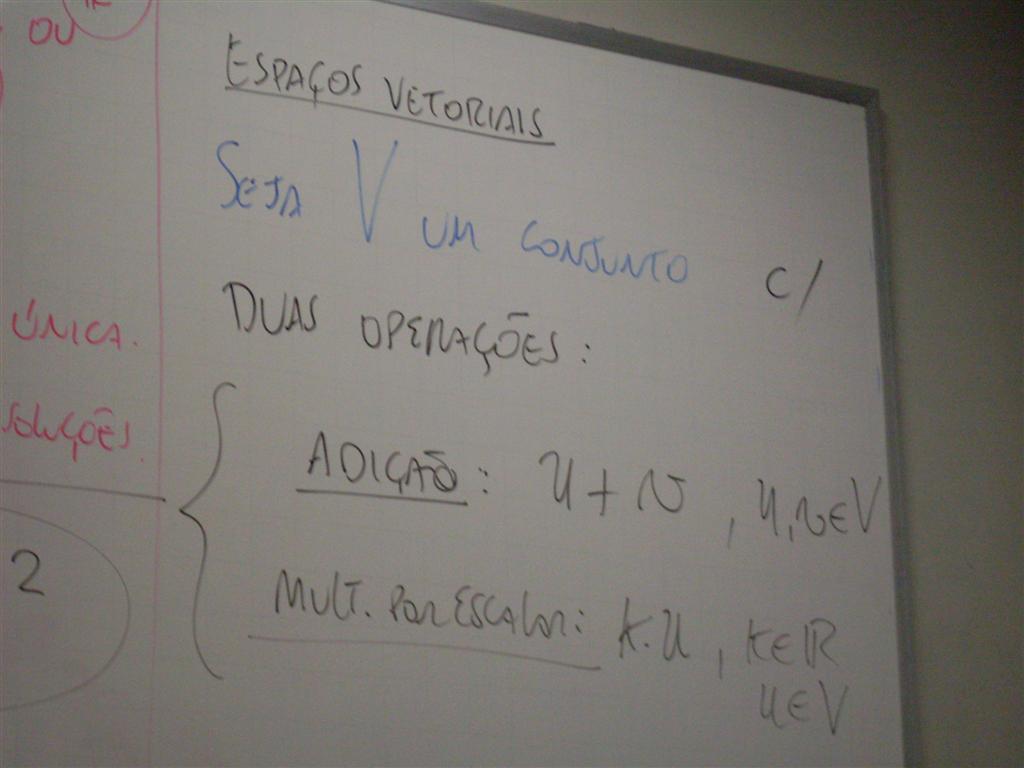 OU
ÚNICA.
SOLUÇÕES.
2
ESPAÇOS VETORIAIS
SEJA V UM CONJUNTO C/
DUAS OPERAÇÕES:
ADIÇÃO: u + v, u, v ∈ V
MULT. POR ESCALAR: K.u, K ∈ ℝ
u ∈ V